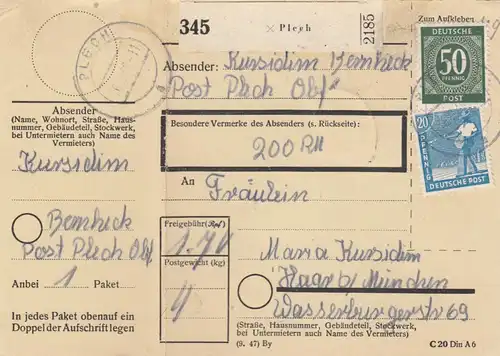 345 × Plech 2185
Zum Aufkleben
PLECH
a
DEUTSCHE
50
PFENNIG
POST
20
PFENNIG
DEUTSCHE POST
Absender: Kursidim Bernheck
Post Plech Obf.
Besondere Vermerke des Absenders (s. Rückseite):
200 RM
An
Fräulein
Maria Kursidim
Haar b/ München
Wasserburgerstr 69
(Straße, Hausnummer, Gebäudeteil, Stockwerk,
bei Untermietern auch Name des Vermieters)
Freigebühr (Rpf)
1.70
Postgewicht (kg)
4
Absender
(Name, Wohnort, Straße, Haus-
nummer, Gebäudeteil, Stockwerk,
bei Untermietern auch Name des
Vermieters)
Kursidim
Bernheck
Post Plech Obf.
Anbei 1 Paket
In jedes Paket obenauf ein
Doppel der Aufschrift legen
(9. 47) By
C 20 Din A 6